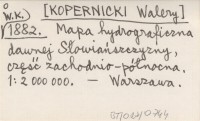 [KOPERNICKI Walery]
W.K.)
1882. Mapa hydrograficzna
dawnej Słowiańszczyzny,
część zachodnio-północna.
1:2 000 000. — Warszawa.